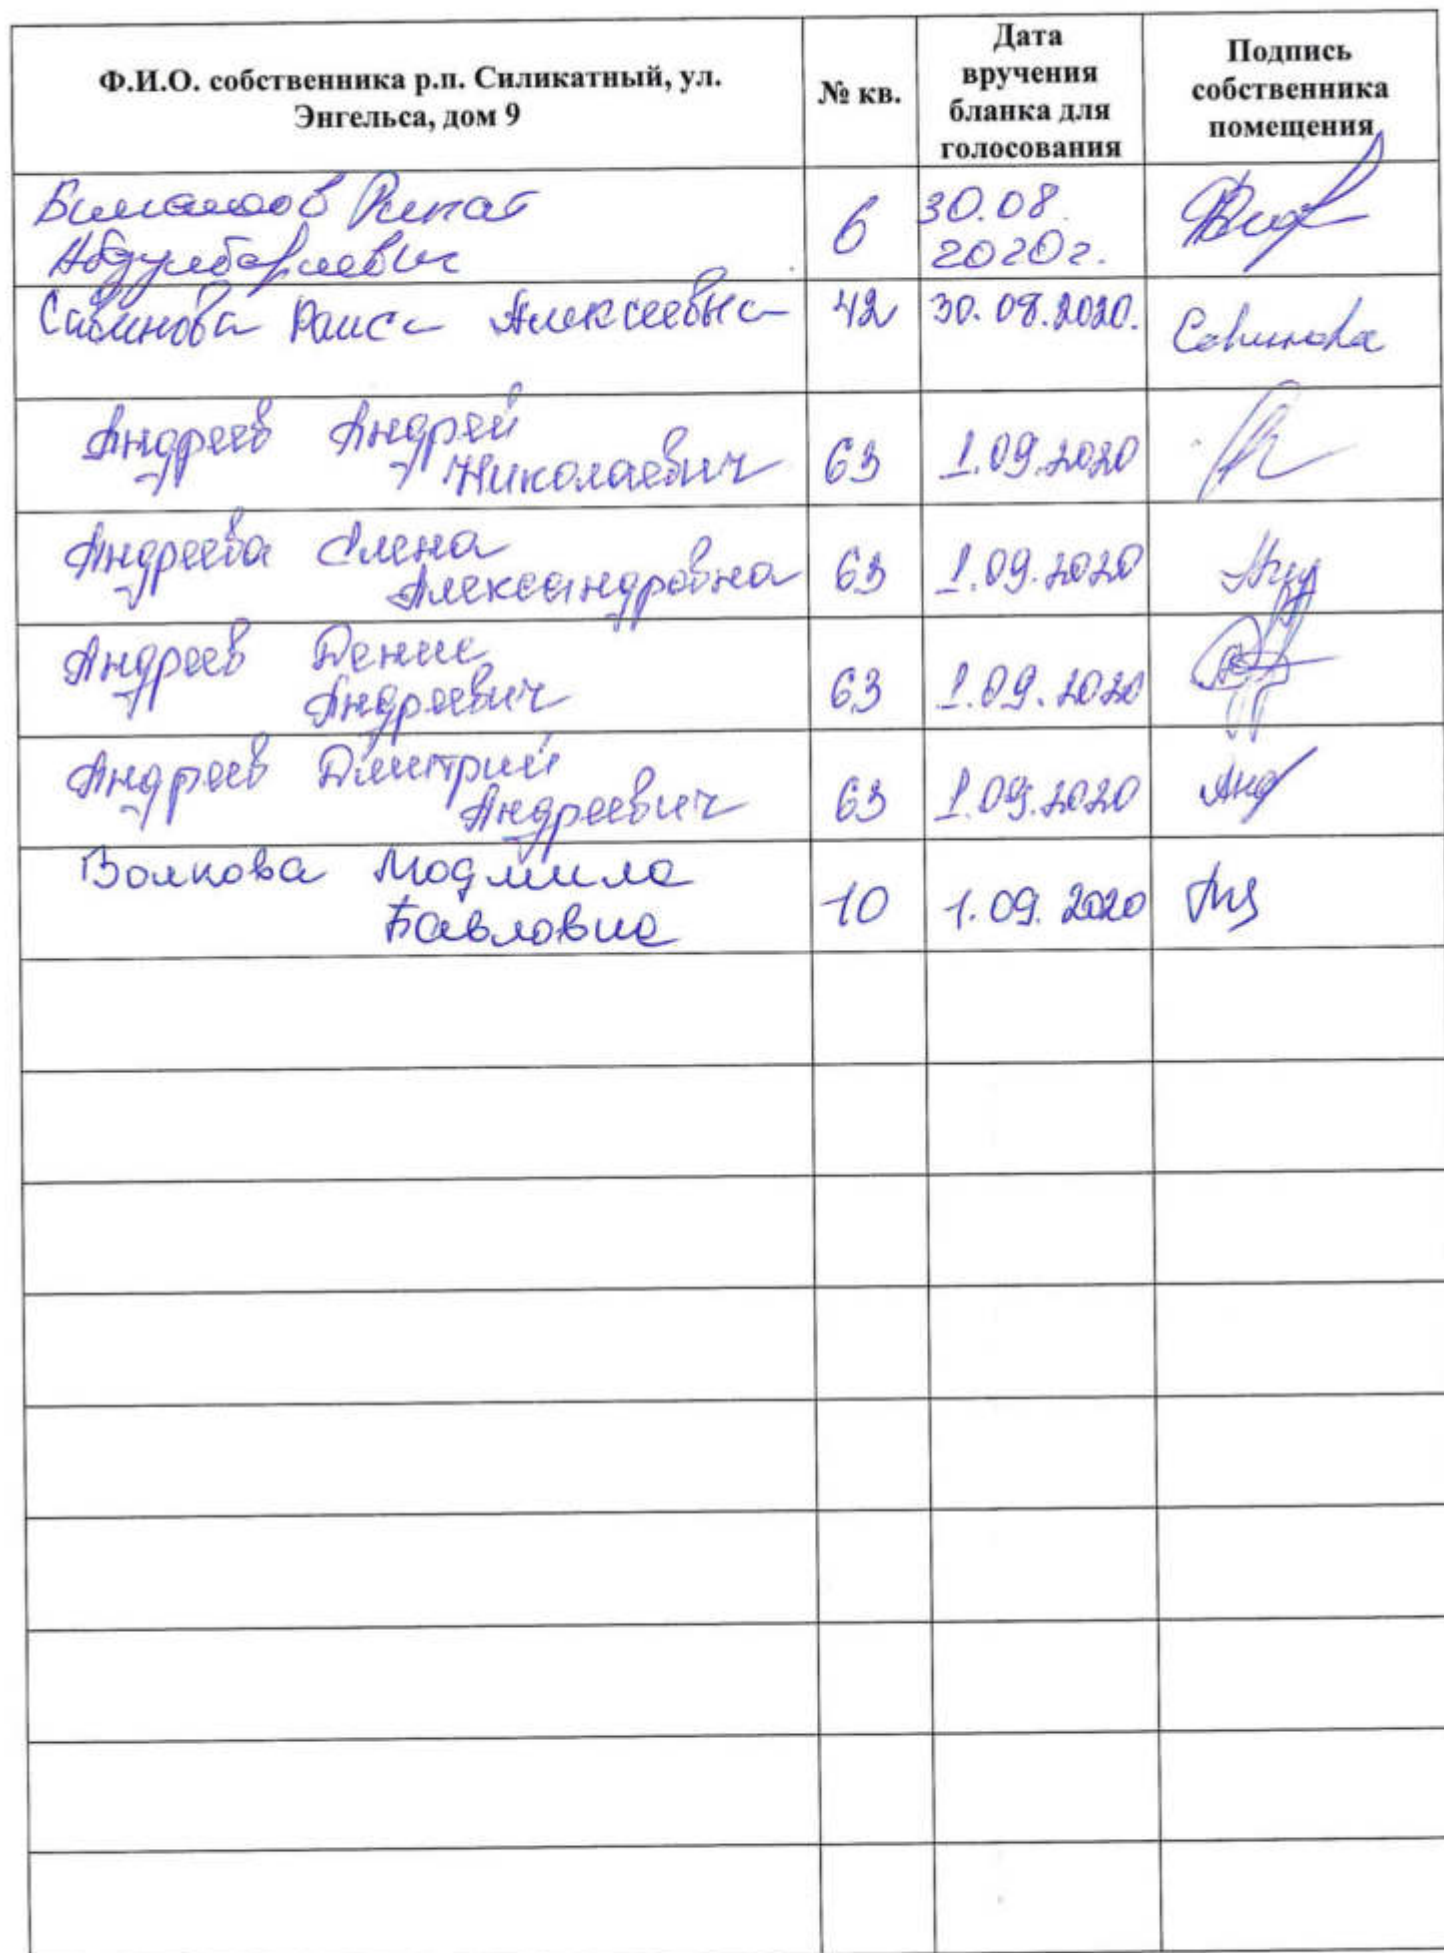 Ф.И.О. собственника р.п. Силикатный, ул.
Энгельса, дом 9
№ кв.
Дата
вручения
бланка для
голосования
Подпись
собственника
помещения
Ринат
6
30.08.
2020г.
Савинова Раиса Алексеевна
42
30.08.2020.
Савинова
Андреев Андрей
Николаевич
63
1.09.2020
Андреева Елена
Александровна
63
1.09.2020
Андреев Денис
Андреевич
63
1.09.2020
Андреев Дмитрий
Андреевич
63
1.09.2020
Анд
Волкова Людмила
Павловна
10
1.09.2020